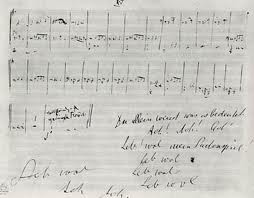 Du allein weisst was es bedeutet
Ach! Ach! Ach!
Leb' wol mein Saitenspiel!
Leb wol
Leb wol
Leb wol
Leb wol
Ach Ach